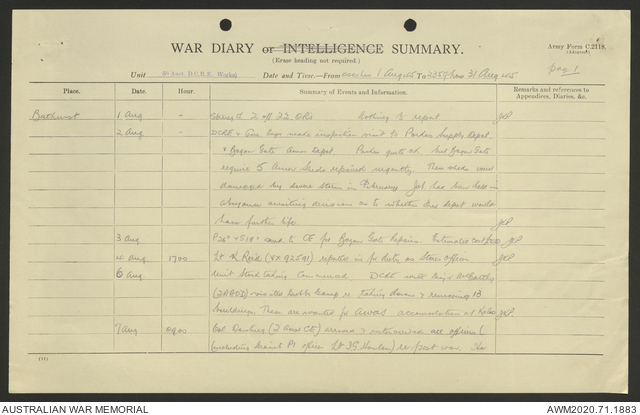 WAR DIARY or INTELLIGENCE SUMMARY.
Army Form C.2118.
(Adapted)
(Erase heading not required.)
page 1
Unit Aust. D.C.R.E. Works Date and Time.—From 1 Aug 45 To 2359 hrs 31 Aug 45
Place. Date. Hour. Summary of Events and Information. Remarks and references to Appendices, Diaries, &c.
Bathurst 1 Aug - Strength 2 off 22 ORs Nothing to report
2 Aug - DCRE & made inspection visit to Parkes Supply Depot
& Bogan Gate Ammo Depot. Parkes quite ok. but Bogan Gate
require 5 Ammo Sheds repaired urgently. These sheds were
damaged by severe storm in February. Job has been held in
abeyance awaiting decision as to whether this depot would
have further life.
3 Aug sent to CE for Bogan Gate Repairs. Estimated cost
4 Aug 1700 Lt K Reid (VX92591) reported in for duty as Stores officer
6 Aug Unit Stock taking commenced. DCRE with Major McCarthy
visited camp re taking down & removing 13
buildings. These are wanted for AWAS accommodation at
7 Aug 0900 Col (2 Aust CE) arrived & interviewed all officers
(including Maint Pl officer Lt ) re post war.
(11)
AUSTRALIAN WAR MEMORIAL
AWM2020.71.1883